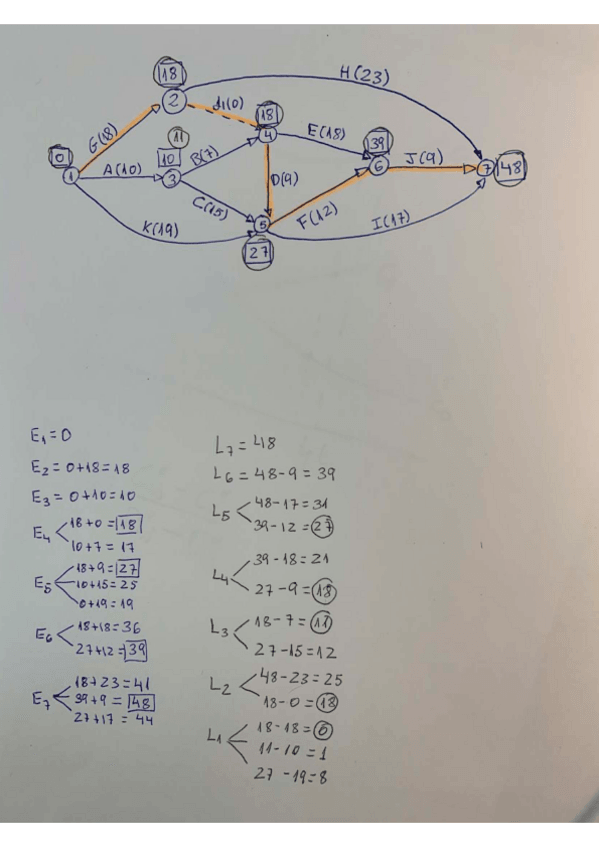 18
H(23)
2
d1(0)
18
4
E(18)
G(18)
11
10
B(7)
39
6
J(9)
7
48
0
1
A(10)
3
D(9)
C(15)
F(12)
K(19)
5
I(17)
27
E1 = 0
E2 = 0+18 = 18
E3 = 0+10 = 10
E4
18+0 = 18
10+7 = 17
E5
18+9 = 27
10+15 = 25
0+19 = 19
E6
18+18 = 36
27+12 = 39
E7
18+23 = 41
39+9 = 48
27+17 = 44
L7 = 48
L6 = 48-9 = 39
L5
48-17 = 31
39-12 = 27
L4
39-18 = 21
27-9 = 18
L3
18-7 = 11
27-15 = 12
L2
48-23 = 25
18-0 = 18
L1
18-18 = 0
11-10 = 1
27-19 = 8